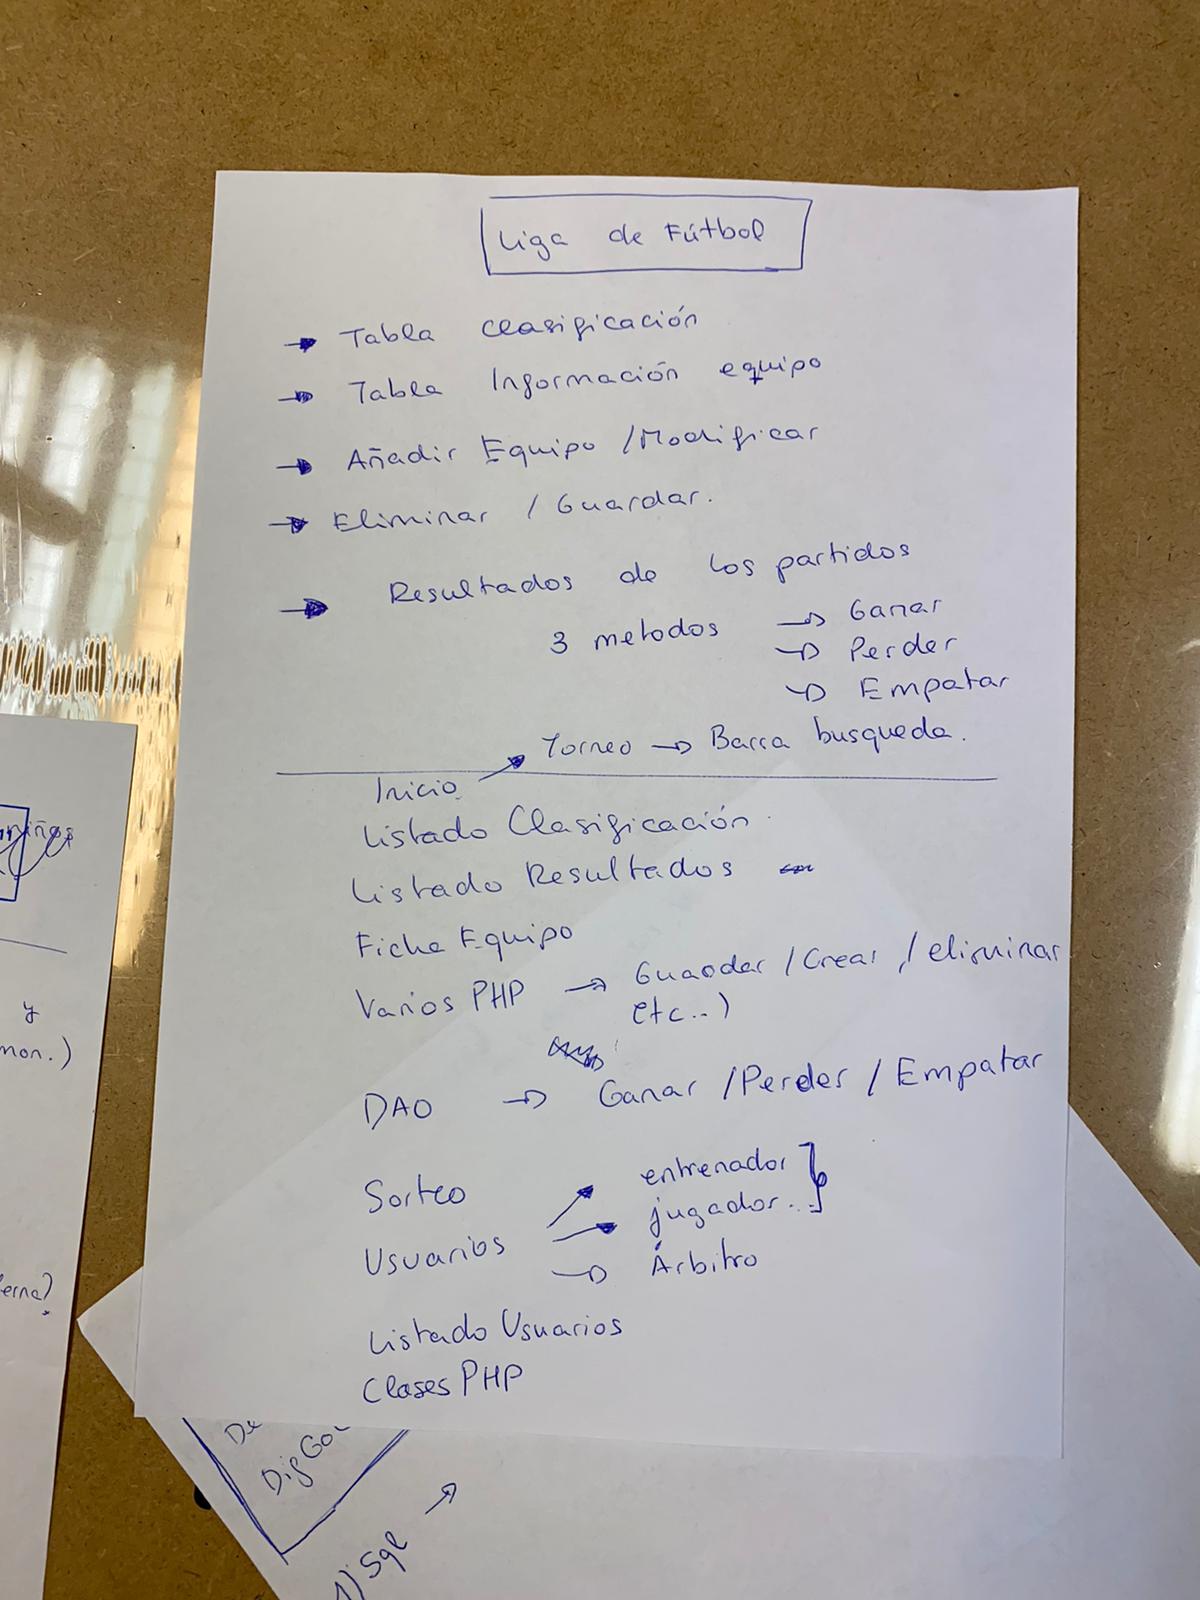 Liga de Fútbol
→ Tabla clasificación
→ Tabla Información equipo
→ Añadir Equipo / Modificar
→ Eliminar / Guardar.
→ Resultados de los partidos
3 metodos → Ganar
→ Perder
→ Empatar
Torneo → Barra busqueda.
Inicio
Listado Clasificación
Listado Resultados
Ficha Equipo
Varios PHP → Guardar / Crear / eliminar
etc..)
DAO → Ganar / Perder / Empatar
Sorteo
entrenador
jugador..
Usuarios
→ Árbitro
Listado Usuarios
Clases PHP
y
mon.)
DigGo
1) Sql →